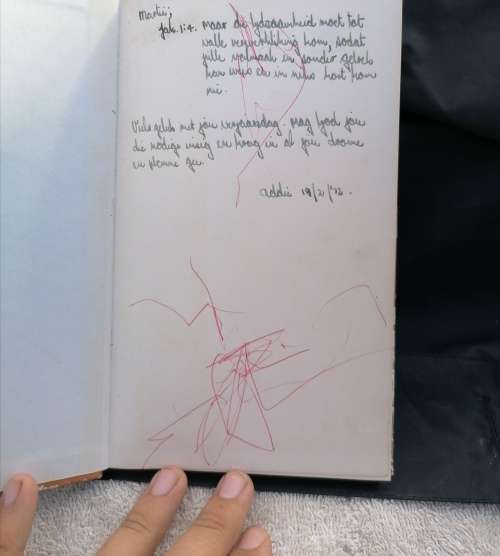 Martie;
Jak. 1:4. Maar die lydsaamheid moet tot
volle verwerkliking kom, sodat
julle volmaak en sonder gebrek
kan wees en in niks kort kom
nie.
Veels geluk met jou verjaarsdag. Mag God jou
die nodige insig en krag in al jou drome
en planne gee.
Addie